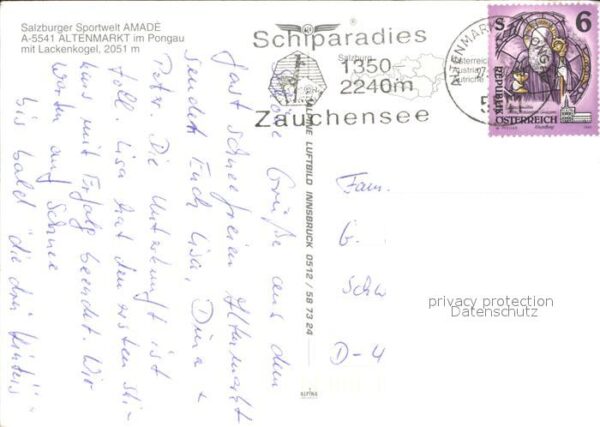 Salzburger Sportwelt AMADE
A-5541 ALTENMARKT im Pongau
mit Lackenkogel, 2051 m
Schiparadies
Salzburg
1350-
2240m
Zauchensee
Österreich
Austria
Autriche
ALTENMARKT
S 6
REPUBLIK
ÖSTERREICH
LUFTBILD INNSBRUCK 0512 / 58 73 24
ALPINA
Grüße aus dem
fast schneefreien Altenmarkt
senden Euch Lisa, Dina +
Peter. Die Unterkunft ist
toll. Lisa hat den ersten Ski-
kurs mit Erfolg beendet. Wir
warten auf Schnee
bis bald "die drei
Fam.
G.
Schw
D-4
privacy protection
Datenschutz